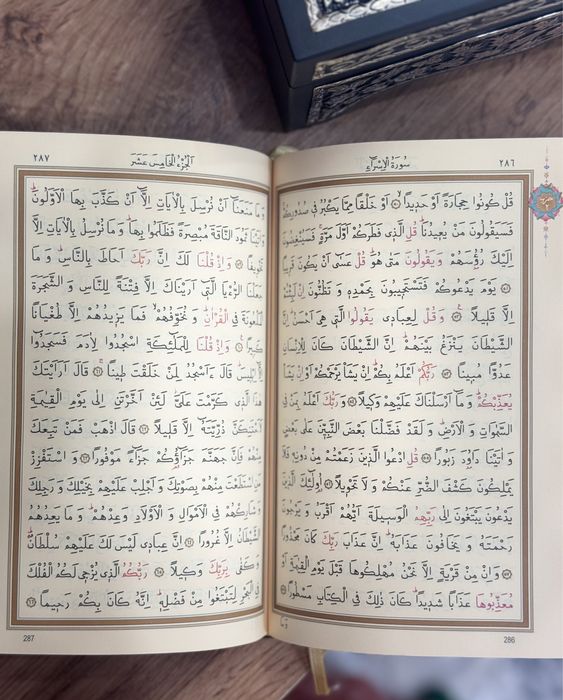 ٢٨٦
سُورَةُ الْاِسْرَاءِ
قُلْ كُونُوا حِجَارَةً اَوْ حَدٖيدًاۙ ۝ اَوْ خَلْقًا مِمَّا يَكْبُرُ فٖي صُدُورِكُمْۚ
فَسَيَقُولُونَ مَنْ يُعٖيدُنَاۜ قُلِ الَّذٖي فَطَرَكُمْ اَوَّلَ مَرَّةٍۚ فَسَيُنْغِضُونَ
اِلَيْكَ رُؤُسَهُمْ وَيَقُولُونَ مَتٰى هُوَۜ قُلْ عَسٰٓى اَنْ يَكُونَ قَرٖيبًا
۝ يَوْمَ يَدْعُوكُمْ فَتَسْتَجٖيبُونَ بِحَمْدِهٖ وَ تَظُنُّونَ اِنْ لَبِثْتُمْ
اِلَّا قَلٖيلًا۟ ۝ وَ قُلْ لِعِبَادٖي يَقُولُوا الَّتٖي هِيَ اَحْسَنُۜ اِنَّ
الشَّيْطَانَ يَنْزَغُ بَيْنَهُمْۜ اِنَّ الشَّيْطَانَ كَانَ لِلْاِنْسَانِ
عَدُوًّا مُبٖينًا ۝ رَبُّكُمْ اَعْلَمُ بِكُمْۜ اِنْ يَشَأْ يَرْحَمْكُمْ اَوْ اِنْ يَشَأْ
يُعَذِّبْكُمْۜ وَ مَٓا اَرْسَلْنَاكَ عَلَيْهِمْ وَكٖيلًا ۝ وَ رَبُّكَ اَعْلَمُ بِمَنْ فِي
السَّمٰوَاتِ وَ الْاَرْضِۜ وَ لَقَدْ فَضَّلْنَا بَعْضَ النَّبِيّٖنَ عَلٰى بَعْضٍ
وَ اٰتَيْنَا دَاوُ۫دَ زَبُورًا ۝ قُلِ ادْعُوا الَّذٖينَ زَعَمْتُمْ مِنْ دُونِهٖ فَلَا
يَمْلِكُونَ كَشْفَ الضُّرِّ عَنْكُمْ وَ لَا تَحْوٖيلًا ۝ اُو۬لٰٓئِكَ الَّذٖينَ
يَدْعُونَ يَبْتَغُونَ اِلٰى رَبِّهِمُ الْوَسٖيلَةَ اَيُّهُمْ اَقْرَبُ وَ يَرْجُونَ
رَحْمَتَهُ وَ يَخَافُونَ عَذَابَهُۜ اِنَّ عَذَابَ رَبِّكَ كَانَ مَحْذُورًا
۝ وَ اِنْ مِنْ قَرْيَةٍ اِلَّا نَحْنُ مُهْلِكُوهَا قَبْلَ يَوْمِ الْقِيٰمَةِ اَوْ
مُعَذِّبُوهَا عَذَابًا شَدٖيدًاۜ كَانَ ذٰلِكَ فِي الْكِتَابِ مَسْطُورًا ۝
وَ مَا
286
اَلْجُزْءُ الْخَامِسَ عَشَرَ
٢٨٧
وَ مَا مَنَعَنَٓا اَنْ نُرْسِلَ بِالْاٰيَاتِ اِلَّٓا اَنْ كَذَّبَ بِهَا الْاَوَّلُونَۜ
وَ اٰتَيْنَا ثَمُودَ النَّاقَةَ مُبْصِرَةً فَظَلَمُوا بِهَاۜ وَ مَا نُرْسِلُ بِالْاٰيَاتِ اِلَّا
تَخْوٖيفًا ۝ وَ اِذْ قُلْنَا لَكَ اِنَّ رَبَّكَ اَحَاطَ بِالنَّاسِۜ وَ مَا
جَعَلْنَا الرُّءْيَا الَّتٖٓي اَرَيْنَاكَ اِلَّا فِتْنَةً لِلنَّاسِ وَ الشَّجَرَةَ
الْمَلْعُونَةَ فِي الْقُرْاٰنِۜ وَ نُخَوِّفُهُمْۙ فَمَا يَزٖيدُهُمْ اِلَّا طُغْيَانًا
كَبٖيرًا۟ ۝ وَ اِذْ قُلْنَا لِلْمَلٰٓئِكَةِ اسْجُدُوا لِاٰدَمَ فَسَجَدُٓوا
اِلَّٓا اِبْلٖيسَۜ قَالَ ءَاَسْجُدُ لِمَنْ خَلَقْتَ طٖينًاۚ ۝ قَالَ اَرَاَيْتَكَ
هٰذَا الَّذٖي كَرَّمْتَ عَلَيَّۘ لَئِنْ اَخَّرْتَنِ اِلٰى يَوْمِ الْقِيٰمَةِ
لَاَحْتَنِكَنَّ ذُرِّيَّتَهُٓ اِلَّا قَلٖيلًا ۝ قَالَ اذْهَبْ فَمَنْ تَبِعَكَ
مِنْهُمْ فَاِنَّ جَهَنَّمَ جَزَٓاؤُ۬كُمْ جَزَٓاءً مَوْفُورًا ۝ وَ اسْتَفْزِزْ
مَنِ اسْتَطَعْتَ مِنْهُمْ بِصَوْتِكَ وَ اَجْلِبْ عَلَيْهِمْ بِخَيْلِكَ وَ رَجِلِكَ
وَ شَارِكْهُمْ فِي الْاَمْوَالِ وَ الْاَوْلَادِ وَعِدْهُمْۜ وَ مَا يَعِدُهُمُ
الشَّيْطَانُ اِلَّا غُرُورًا ۝ اِنَّ عِبَادٖي لَيْسَ لَكَ عَلَيْهِمْ سُلْطَانٌۜ
وَ كَفٰى بِرَبِّكَ وَكٖيلًا ۝ رَبُّكُمُ الَّذٖي يُزْجٖي لَكُمُ الْفُلْكَ
فِي الْبَحْرِ لِتَبْتَغُوا مِنْ فَضْلِهٖۜ اِنَّهُ كَانَ بِكُمْ رَحٖيمًا ۝
287